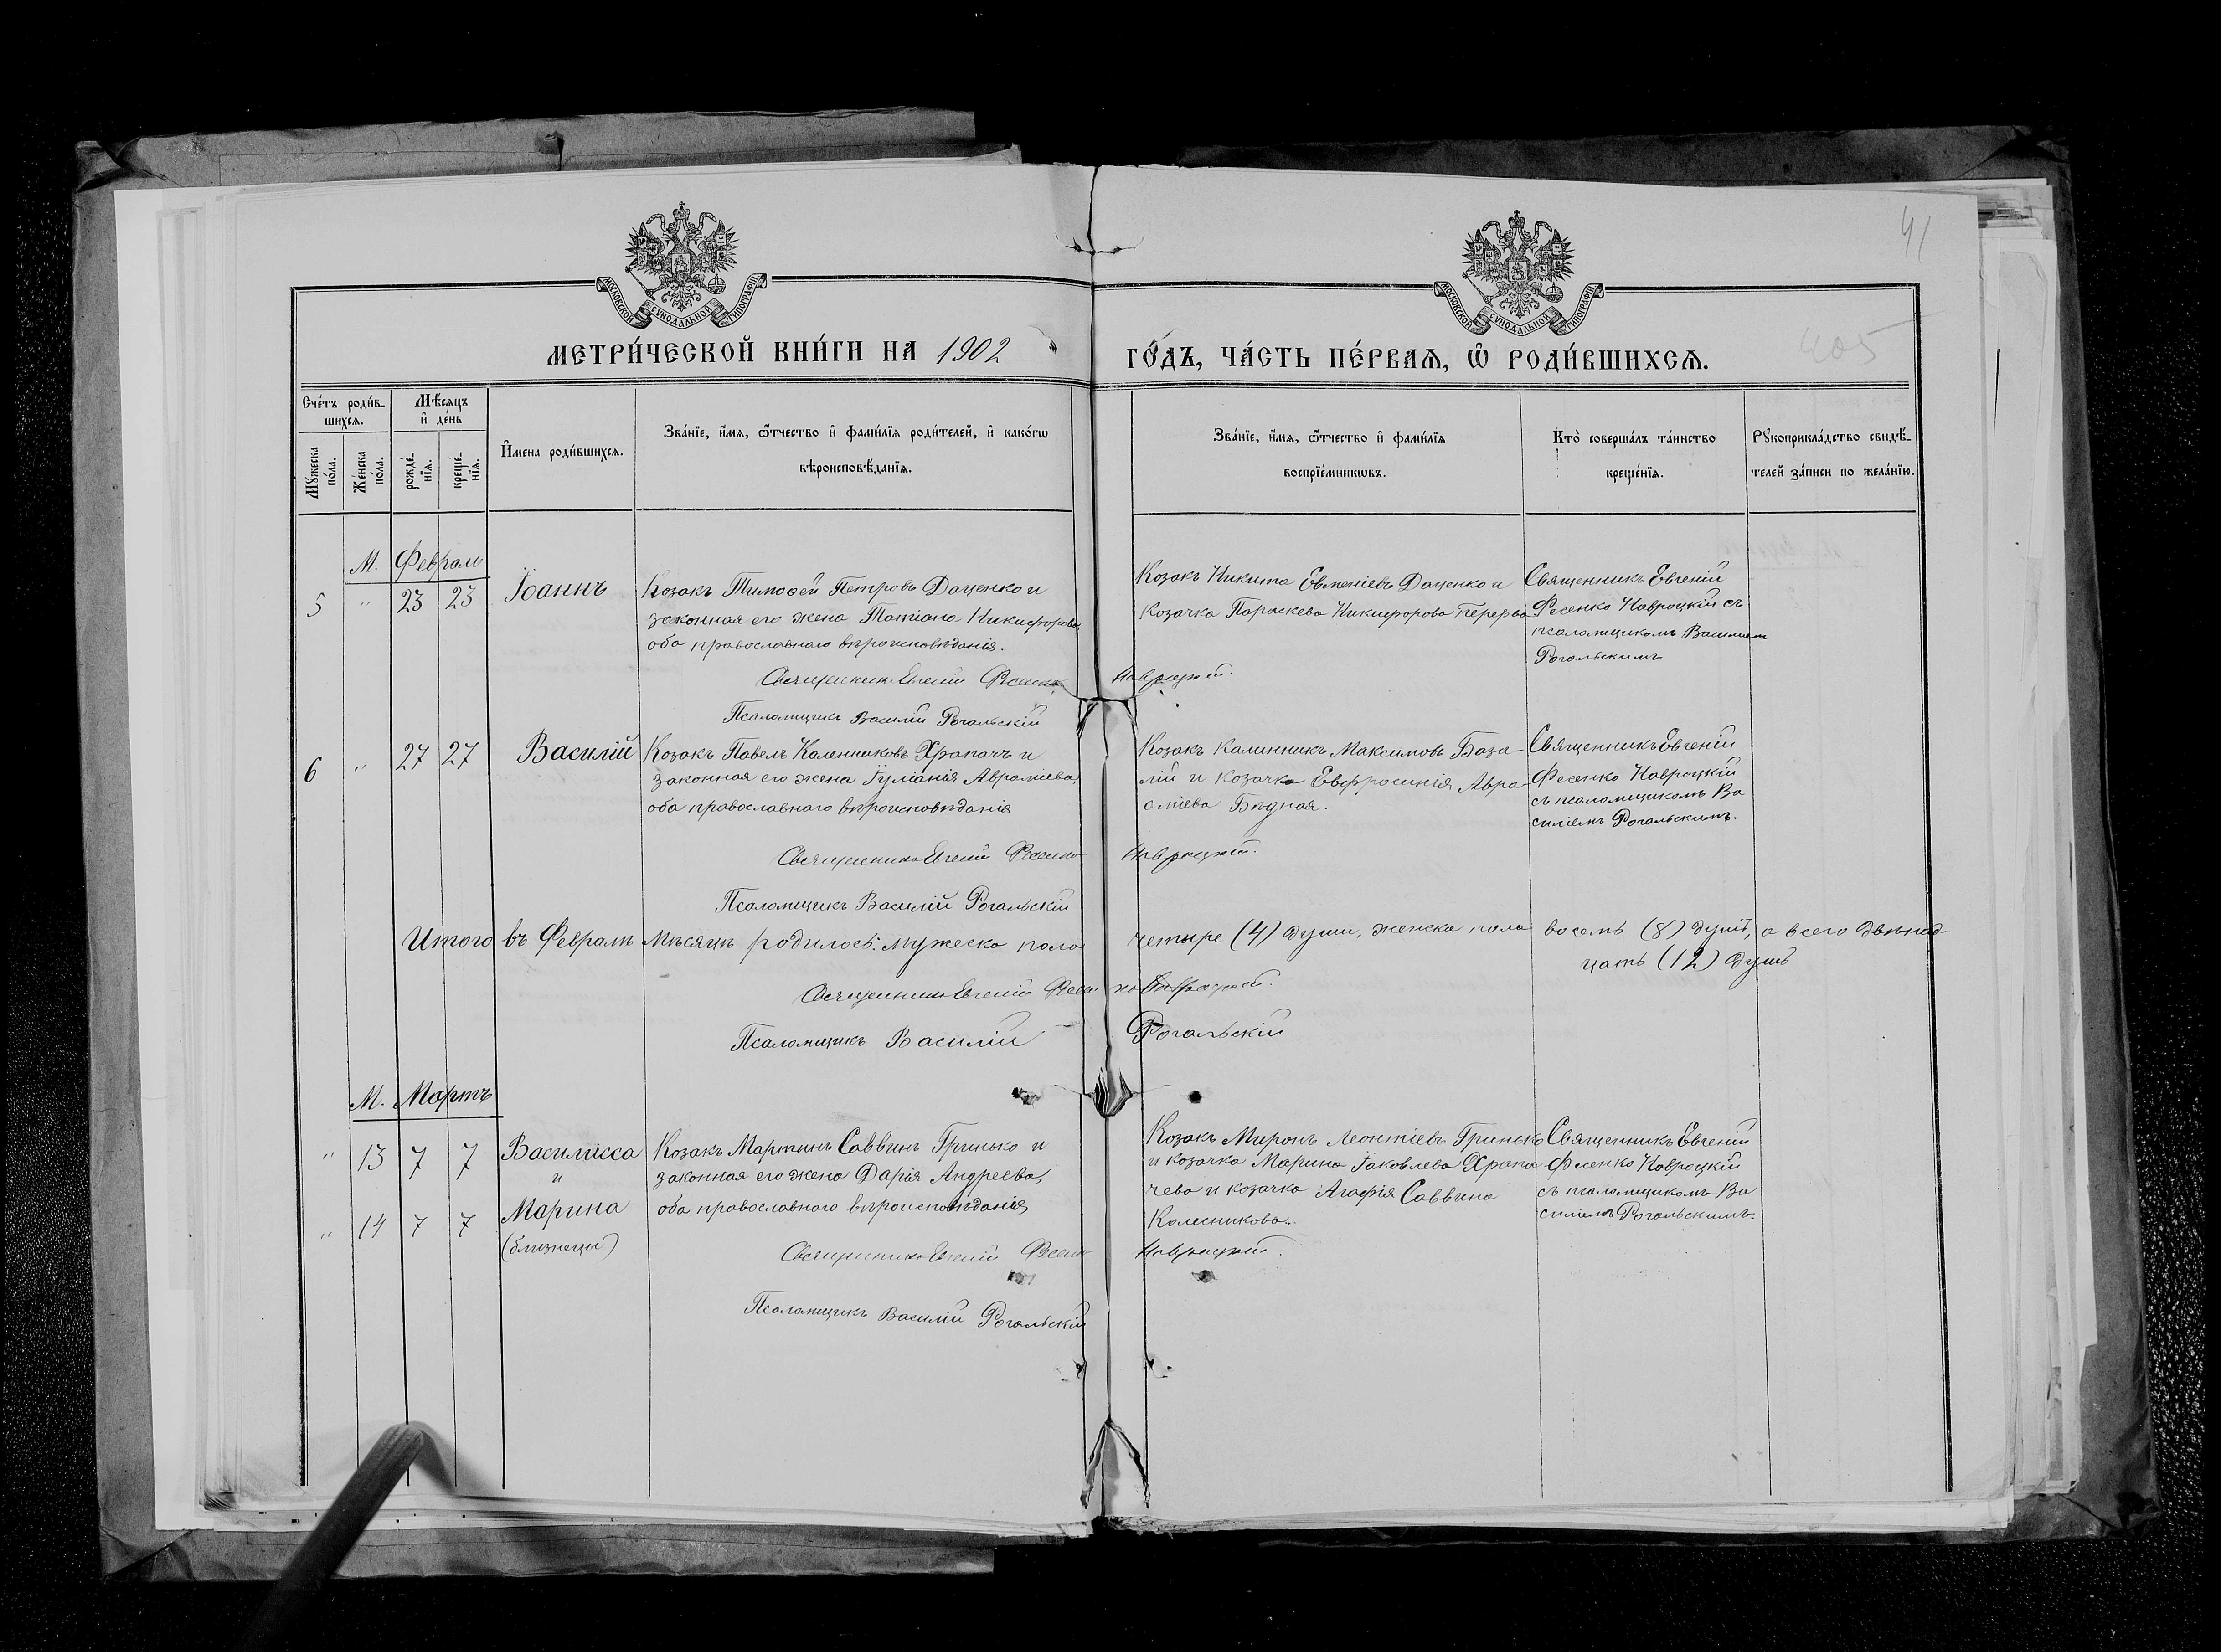 41
405
МОСКОВСКОЙ СѴНОДАЛЬНОЙ ТИПОГРАФІИ
МОСКОВСКОЙ СѴНОДАЛЬНОЙ ТИПОГРАФІИ
МЕТРИ́ЧЕСКОЙ КНИ́ГИ НА 1902
ГО́ДЪ, ЧА́СТЬ ПЕ́РВАѦ, Ѡ҆ РОДИ́ВШИХСѦ.
Сче́тъ роди́в-
шихсѧ.
Мꙋ́жеска по́ла.
Же́нска по́ла.
Мѣ́сѧцъ
и҆ де́нь
рожде́-
нїѧ.
креще́-
нїѧ.
И҆мена роди́вшихсѧ.
Зва́нїе, и҆́мѧ, ѻ҆́тчество и҆ фами́лїѧ роди́телей, и҆ како́гѡ
вѣроисповѣ́данїѧ.
Зва́нїе, и҆́мѧ, ѻ҆́тчество и҆ фами́лїѧ
воспрїе́мникѡвъ.
Кто̀ соверша́лъ та́инство
креще́нїѧ.
Рꙋкоприкла́дство свидѣ́-
телей за́писи по жела́нїю.
М. Февраль
5 " 23 23 Іоаннъ
Козакъ Тимоѳей Петровъ Даценко и
законная его жена Татіана Никифорова
оба православнаго вѣроисповѣданія.
Козакъ Никита Евменіевъ Даценко и
козачка Параскева Никифорова Перерва
Священникъ Евгеній
Фесенко Навроцкій съ
псаломщикомъ Василіем
Рогальскимъ
Священникъ Евгеній Фесенко Навроцкій.
Псаломщикъ Василій Рогальскій
6 " 27 27 Василій
Козакъ Павелъ Каленниковъ Храпачъ и
законная его жена Іуліанія Авраміева,
оба православнаго вѣроисповѣданія
Козакъ Калинникъ Максимовъ База-
лій и козачка Евфросинія Авра-
аміева Бѣдная.
Священникъ Евгеній
Фесенко Навроцкій
съ псаломщикомъ Ва
силіемъ Рогальскимъ.
Священникъ Евгеній Фесенко Навроцкій.
Псаломщикъ Василій Рогальскій
Итого въ Февралѣ мѣсяцѣ родилось: мужеска пола четыре (4) души, женска пола восемь (8) душъ, а всего двѣнад-
цать (12) душъ
Священникъ Евгеній Фесенко Навроцкій.
Псаломщикъ Василій Рогальскій
М. Мартъ
" 13 7 7 Василисса
и
" 14 7 7 Марина
(близнецы)
Козакъ Мартинъ Саввинъ Гринько и
законная его жена Дарія Андреева,
оба православнаго вѣроисповѣданія
Козакъ Миронъ Леонтіевъ Гринько
и козачка Марина Іаковлева Храпа-
чева и козачка Агафія Саввина
Колесникова.
Священникъ Евгеній
Фесенко Навроцкій
съ псаломщикомъ Ва
силіемъ Рогальскимъ.
Священникъ Евгеній Фесенко Навроцкій.
Псаломщикъ Василій Рогальскій